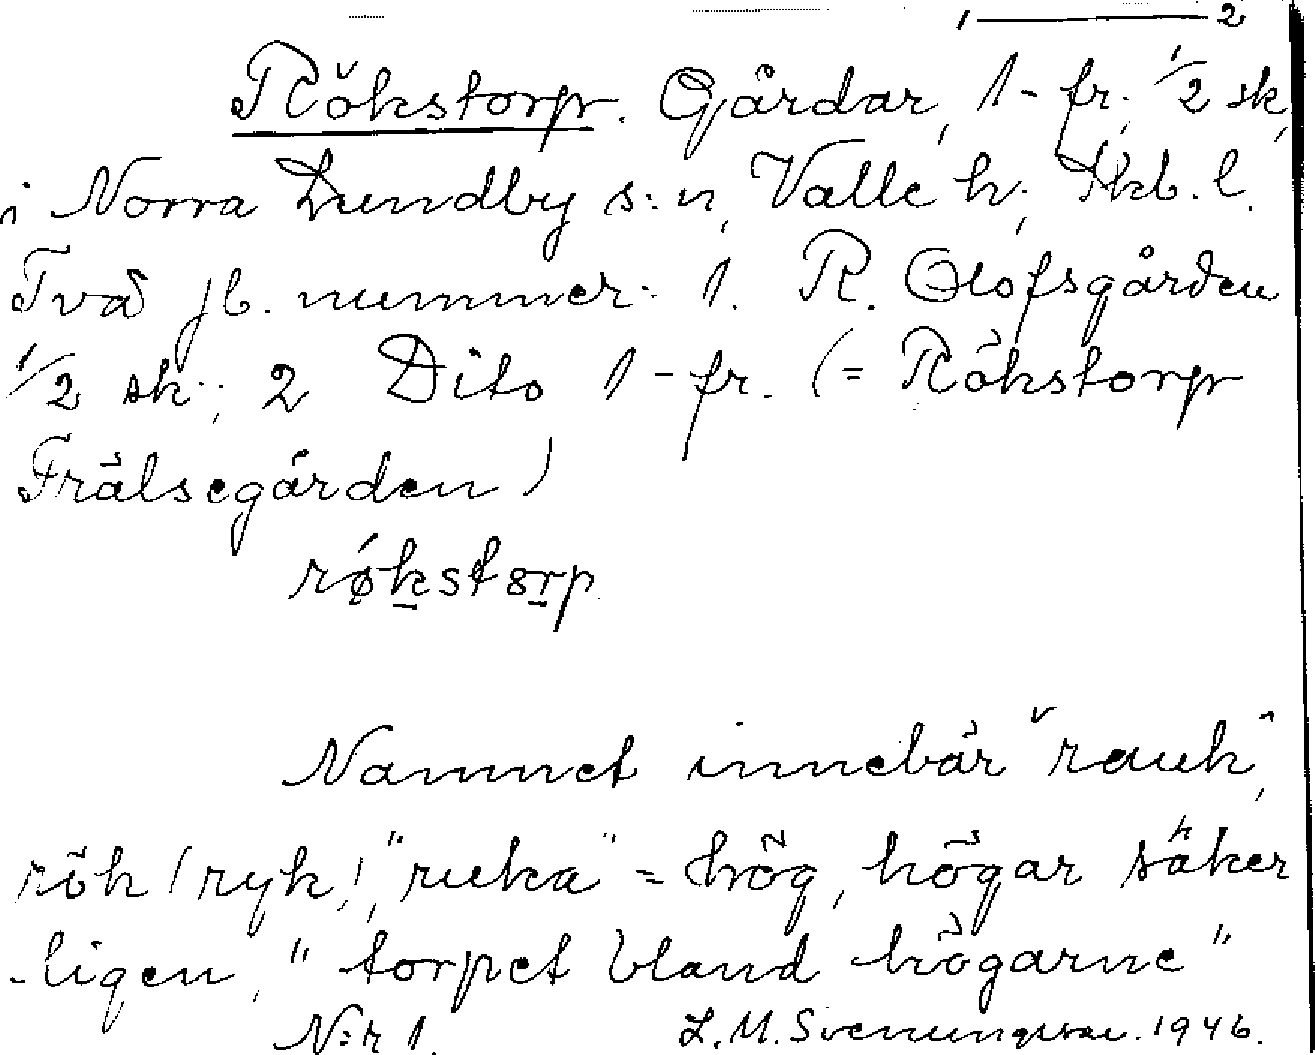 1 — 2
Rökstorp. Gårdar, 1-fr; 1/2 sk,
i Norra Lundby s:n, Valle h; Skb. l.
Två jb. nummer: 1. R. Olofsgården
1/2 sk; 2 Dito 1-fr. (= Rökstorp
Frälsegården)
røkstorp
Namnet innebär "rauk",
rök (ryk), "ruka" = hög, högar säker
-ligen, "torpet bland högarne"
N:r 1. L. M. Svenungsson. 1946.